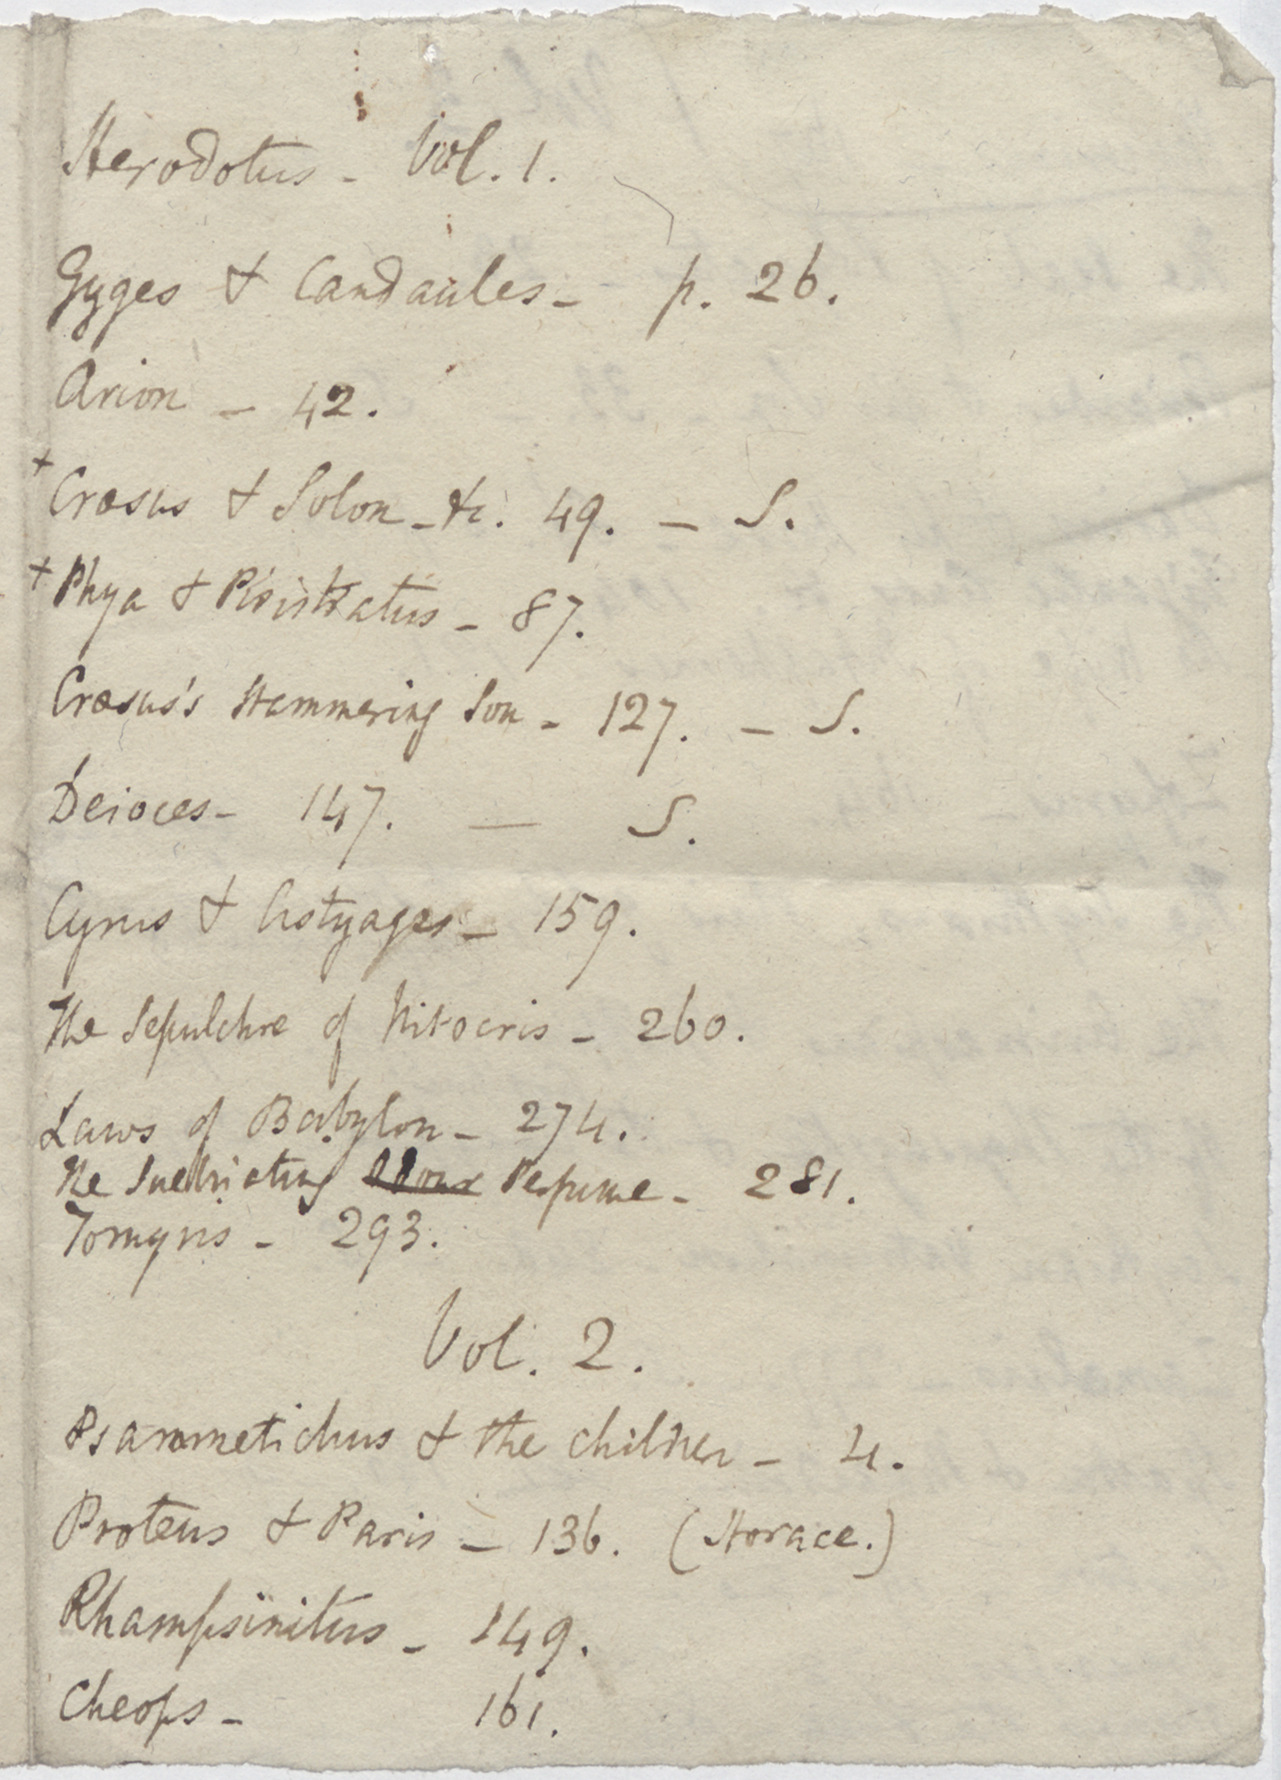 Herodotus - Vol. 1.
Gyges & Candaules - p. 26.
Arion - 42.
+ Crœsus & Solon - &c. 49. - S.
+ Phya & Pisistratus - 87.
Crœsus's stammering Son - 127. - S.
Deioces - 147. - S.
Cyrus & Astyages - 159.
The Sepulchre of Nitocris - 260.
Laws of Babylon - 274.
The Inebriating Perfume - 281.
Tomyris - 293.
Vol. 2.
Psammetichus & the children - 4.
Proteus & Paris - 136. (Horace.)
Rhampsinitus - 149.
Cheops - 161.